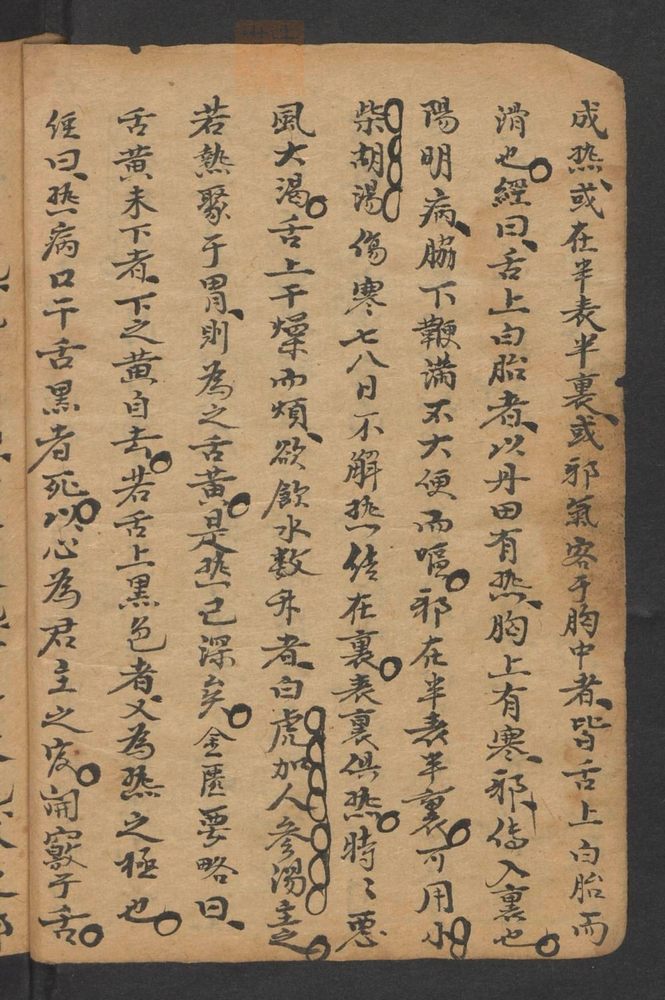 成热或在半表半裏或邪氣客于胸中者皆舌上白胎而
滑也經曰舌上白胎者以丹田有热胸上有寒邪傳入裏也
陽明病脇下鞕満不大便而嘔邪在半表半裏可用小
柴胡湯傷寒七八日不解热结在裏表裏俱热時〻悪
風大渴舌上干燥而煩欲飲水数升者白虎加人参湯主之
若熱聚于胃則為之舌黄是热已深矣金匱要略曰
舌黄未下者下之黄自去若舌上黑色者又為热之極也
經曰热病口干舌黑者死以心為君主之官開竅于舌